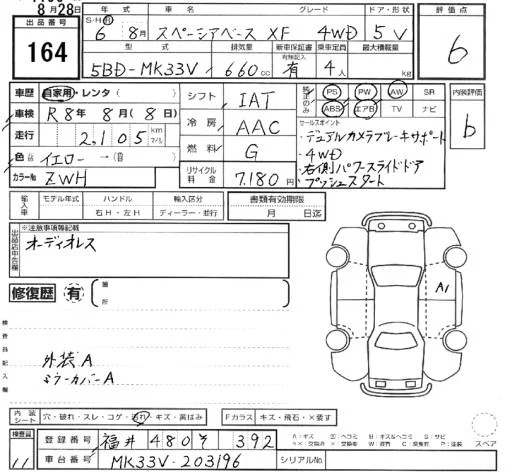 8月28日
出品番号 164
年式 S・H・R 6年 8月
車名 スペーシアベース XF
グレード 4WD
ドア・形状 5V
評価点 6
型式 5BD-MK33V
排気量 660cc
新車保証書 有無記入 有
乗車定員 4人
最大積載量 kg
車歴 自家用・レンタ( )
車検 R8年8月(8日)
走行 2,105 km マイル
色 イエロー →( )
カラーNo. ZWH
シフト IAT
冷房 AAC
燃料 G
リサイクル料金 7,180円
純正のみ PS PW AW SR
ABS エアB TV ナビ
内装評価 b
セールスポイント
・デュアルカメラブレーキサポート
・4WD
・右側パワースライドドア
・プッシュスタート
輸入車 モデル年式 ハンドル 右H・左H 輸入区分 ディーラー・並行
書類有効期限 月 日迄
出品店申告欄 ※注意事項等記載
オーディオレス
修復歴 有 箇所
検査員記入欄
外装A
ミラーカバーA
A1
内装シート 穴・破れ・スレ・コゲ・汚れ・キズ・黄ばみ
Fガラス キズ・飛石・×要す
スペア
検査員 11
登録番号 福井 480 392
車台番号 MK33V-203196
シリアルNo.